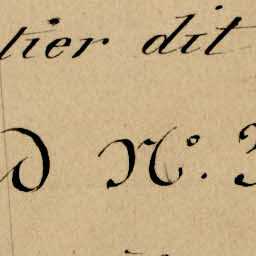 tier dit
d N.° 3